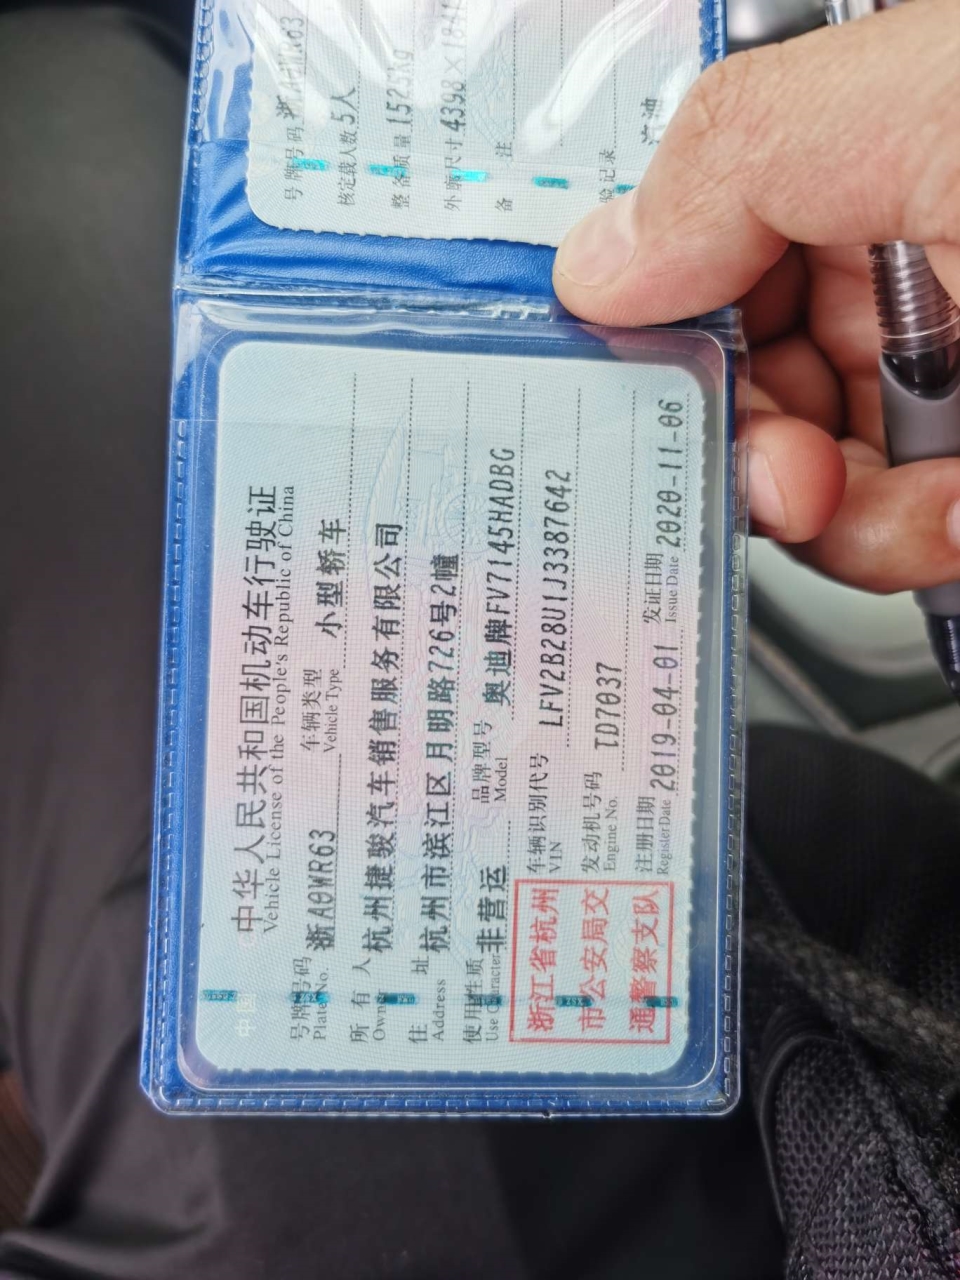 中华人民共和国机动车行驶证
Vehicle License of the People's Republic of China
号牌号码 浙A9WR63 车辆类型 小型轿车
Plate No. Vehicle Type
所有人 杭州捷骏汽车销售服务有限公司
Owner
住址 杭州市滨江区月明路726号2幢
Address
使用性质 非营运 品牌型号 奥迪牌FV7145HADBG
Use Character Model
车辆识别代号 LFV2B28U1J3387642
VIN
发动机号码 TD7037
Engine No.
注册日期 2019-04-01 发证日期 2020-11-06
Register Date Issue Date
浙江省杭州
市公安局交
通警察支队
中国
号牌号码 浙A9WR63
核定载人数 5人
整备质量
外廓尺寸 4398×
备注
验记录
汽油